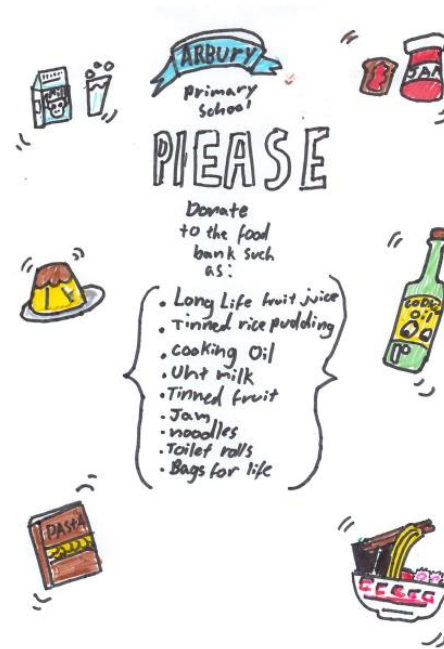 ARBURY
primary
School
PlEASE
Donate
to the food
bank such
as:
JAM
• Long Life fruit juice
• Tinned rice pudding
• cooking Oil
• Uht milk
• Tinned fruit
• Jam
• noodles
• Toilet rolls
• Bags for life
cooking
Oil
PAStA